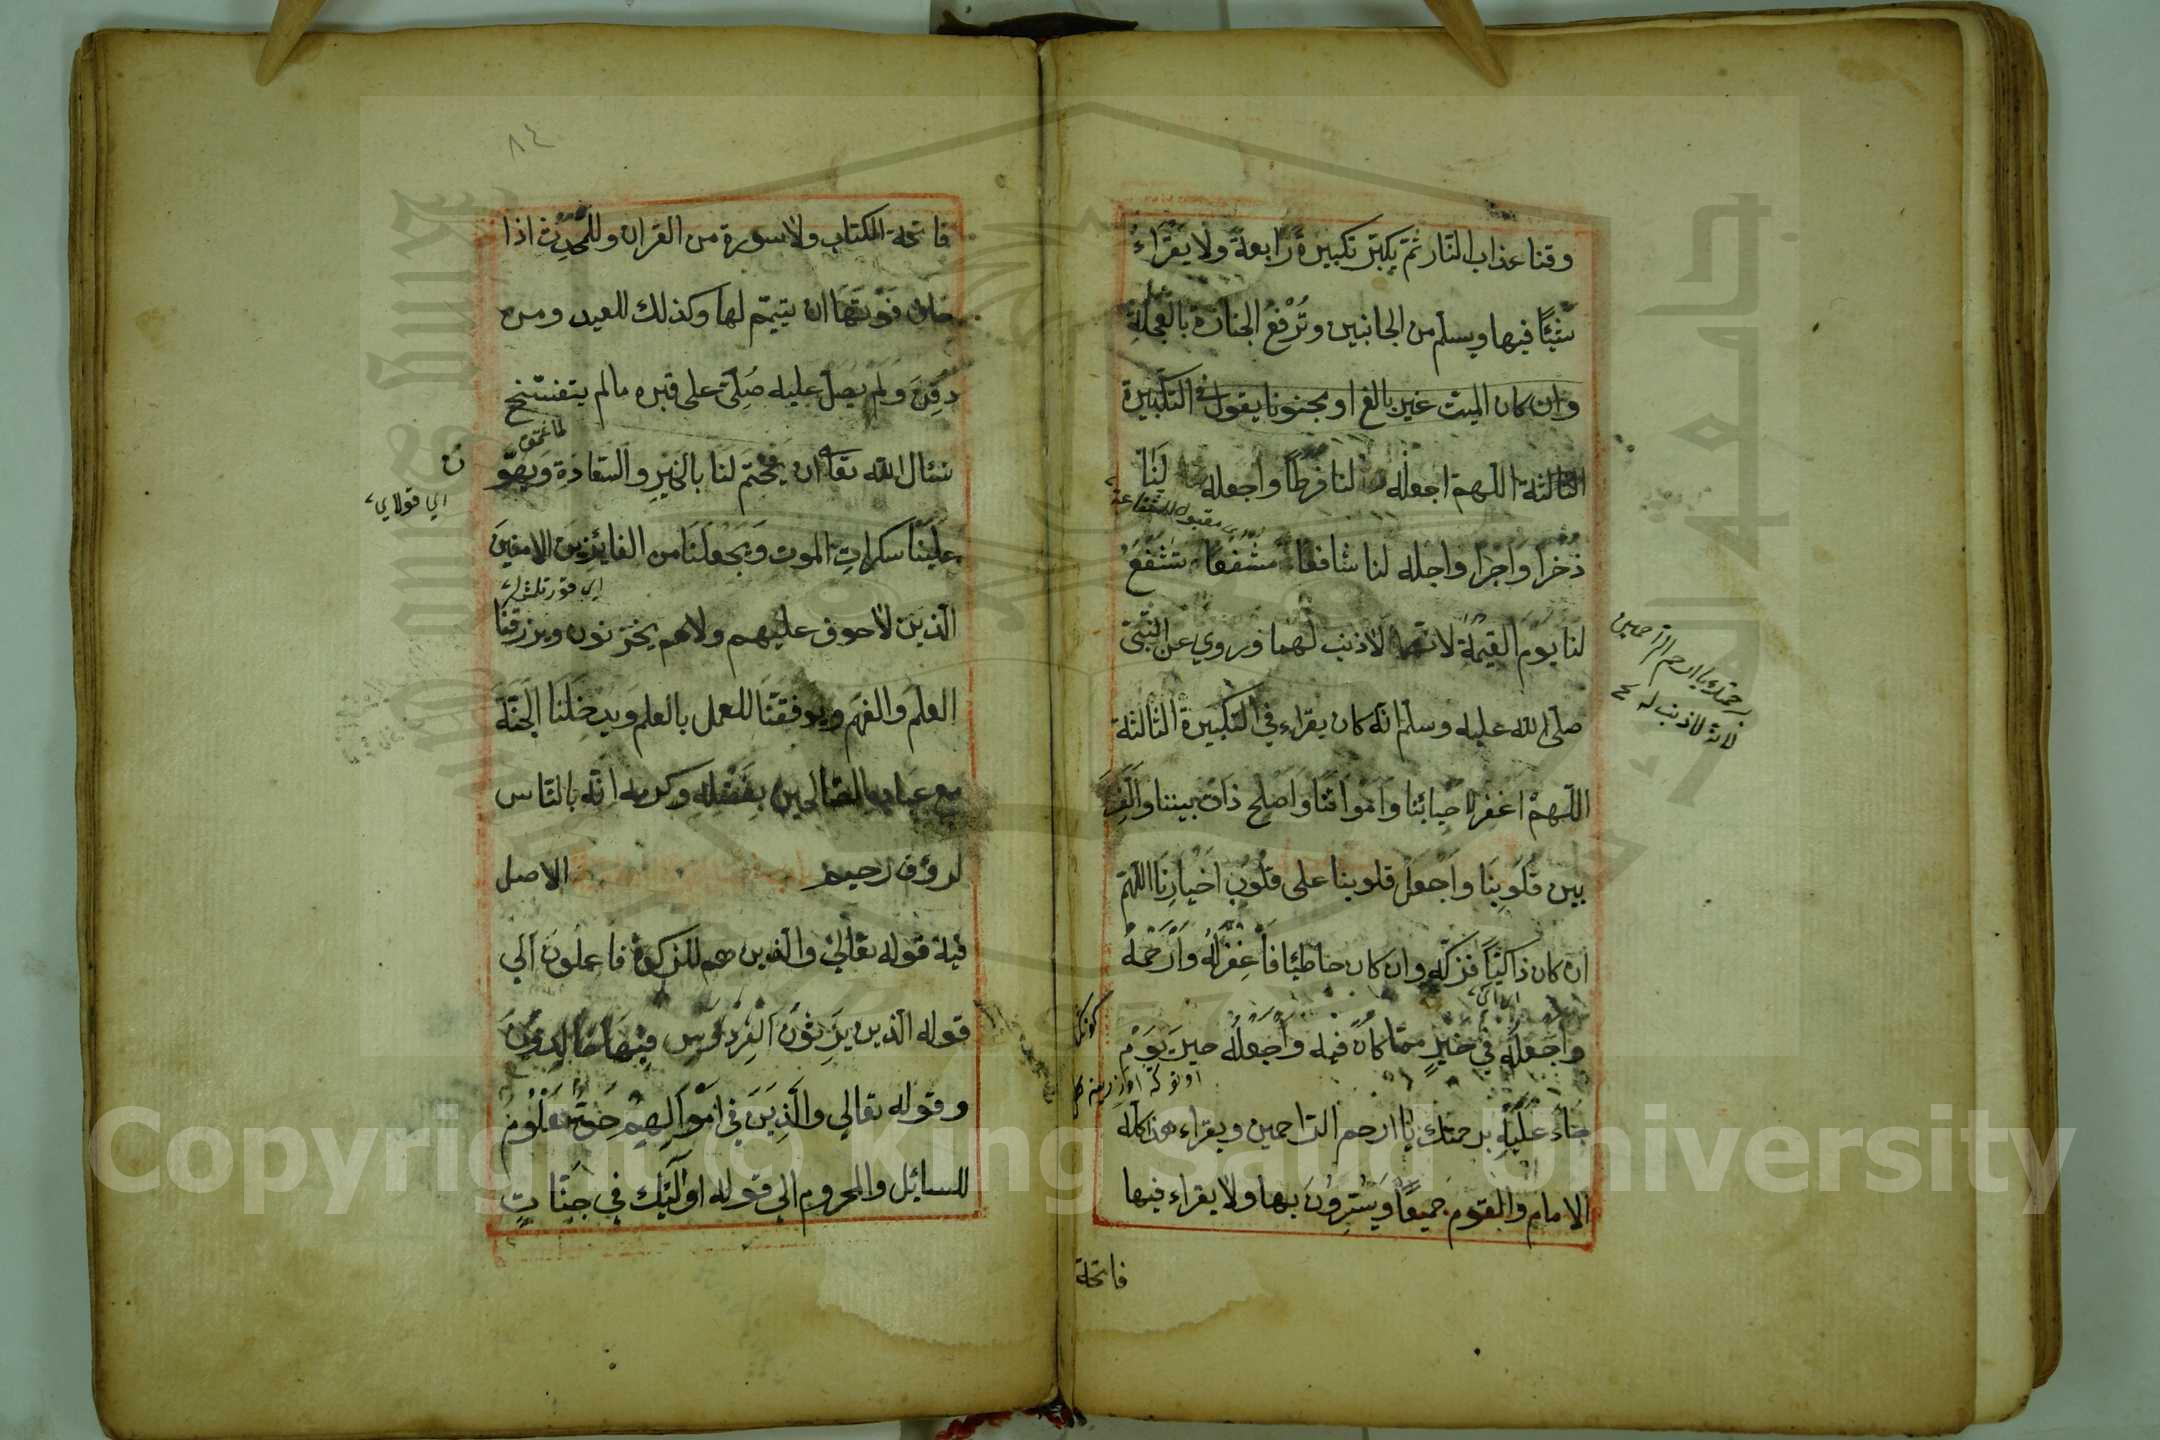 وقنا عذاب النار ثم يكبر تكبيرة رابعة ولا يقراء
شيئا فيها ويسلم من الجانبين وترفع الجنازة بالعجلة
وان كان الميت غير بالغ او مجنونا يقول في التكبيرة
الثالثة اللهم اجعله لنا فرطا واجعله لنا
ذخرا واجرا واجعله لنا شافعا مشفعا تشفع
لنا يوم القيمة لانهما لا ذنب لهما وروي عن النبي
صلى الله عليه وسلم انه كان يقراء في التكبيرة الثالثة
اللهم اغفر لاحيائنا وامواتنا واصلح ذات بيننا والف
بين قلوبنا واجعل قلوبنا على قلوب اخيارنا اللهم
ان كان ذاكيا فزكه وان كان خاطئا فاغفر له وارحمه
واجعله في خير مما كان فيه واجعله خير يوم
جاء عليه برحمتك يا ارحم الراحمين ويقراء هذا كله
الامام والقوم جميعا ويسترون بها ولا يقراء فيها
فاتحة
برحمتك يا ارحم الراحمين
لانه لا ذنب له
مقبول الشفاعة
٨٤
فاتحة الكتاب ولا سورة من القران وللمحدث اذا
خاف فوتها ان يتيمم لها وكذلك للعيد ومن
دفن ولم يصل عليه صلى على قبره ما لم يتفسخ
نسئال الله تعالى ان يختم لنا بالخير والسعادة ويهو
ن
علينا سكرات الموت ويجعلنا من الفائزين الامنين
الذين لا خوف عليهم ولاهم يحزنون ويرزقنا
العلم والفهم ويوفقنا للعمل بالعلم ويدخلنا الجنة
مع عباده الصالحين بفضله وكرمه انه بالناس
لرؤف رحيم الاصل
فيه قوله تعالى والذين هم للزكوة فاعلون الي
قوله الذين يرثون الفردوس فيها خالدون
وقوله تعالي والذين في اموالهم حق معلوم
للسائل والمحروم الي قوله اولئك في جنات
Copyright © King Saud University